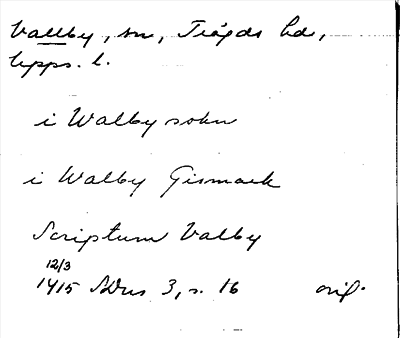 Vallby, sn, Trögds hd,
Upps. l.
i Walby sokn
i Walby Gismark
Scriptum Valby
12/3
1415 SDns 3, s. 16 orig.